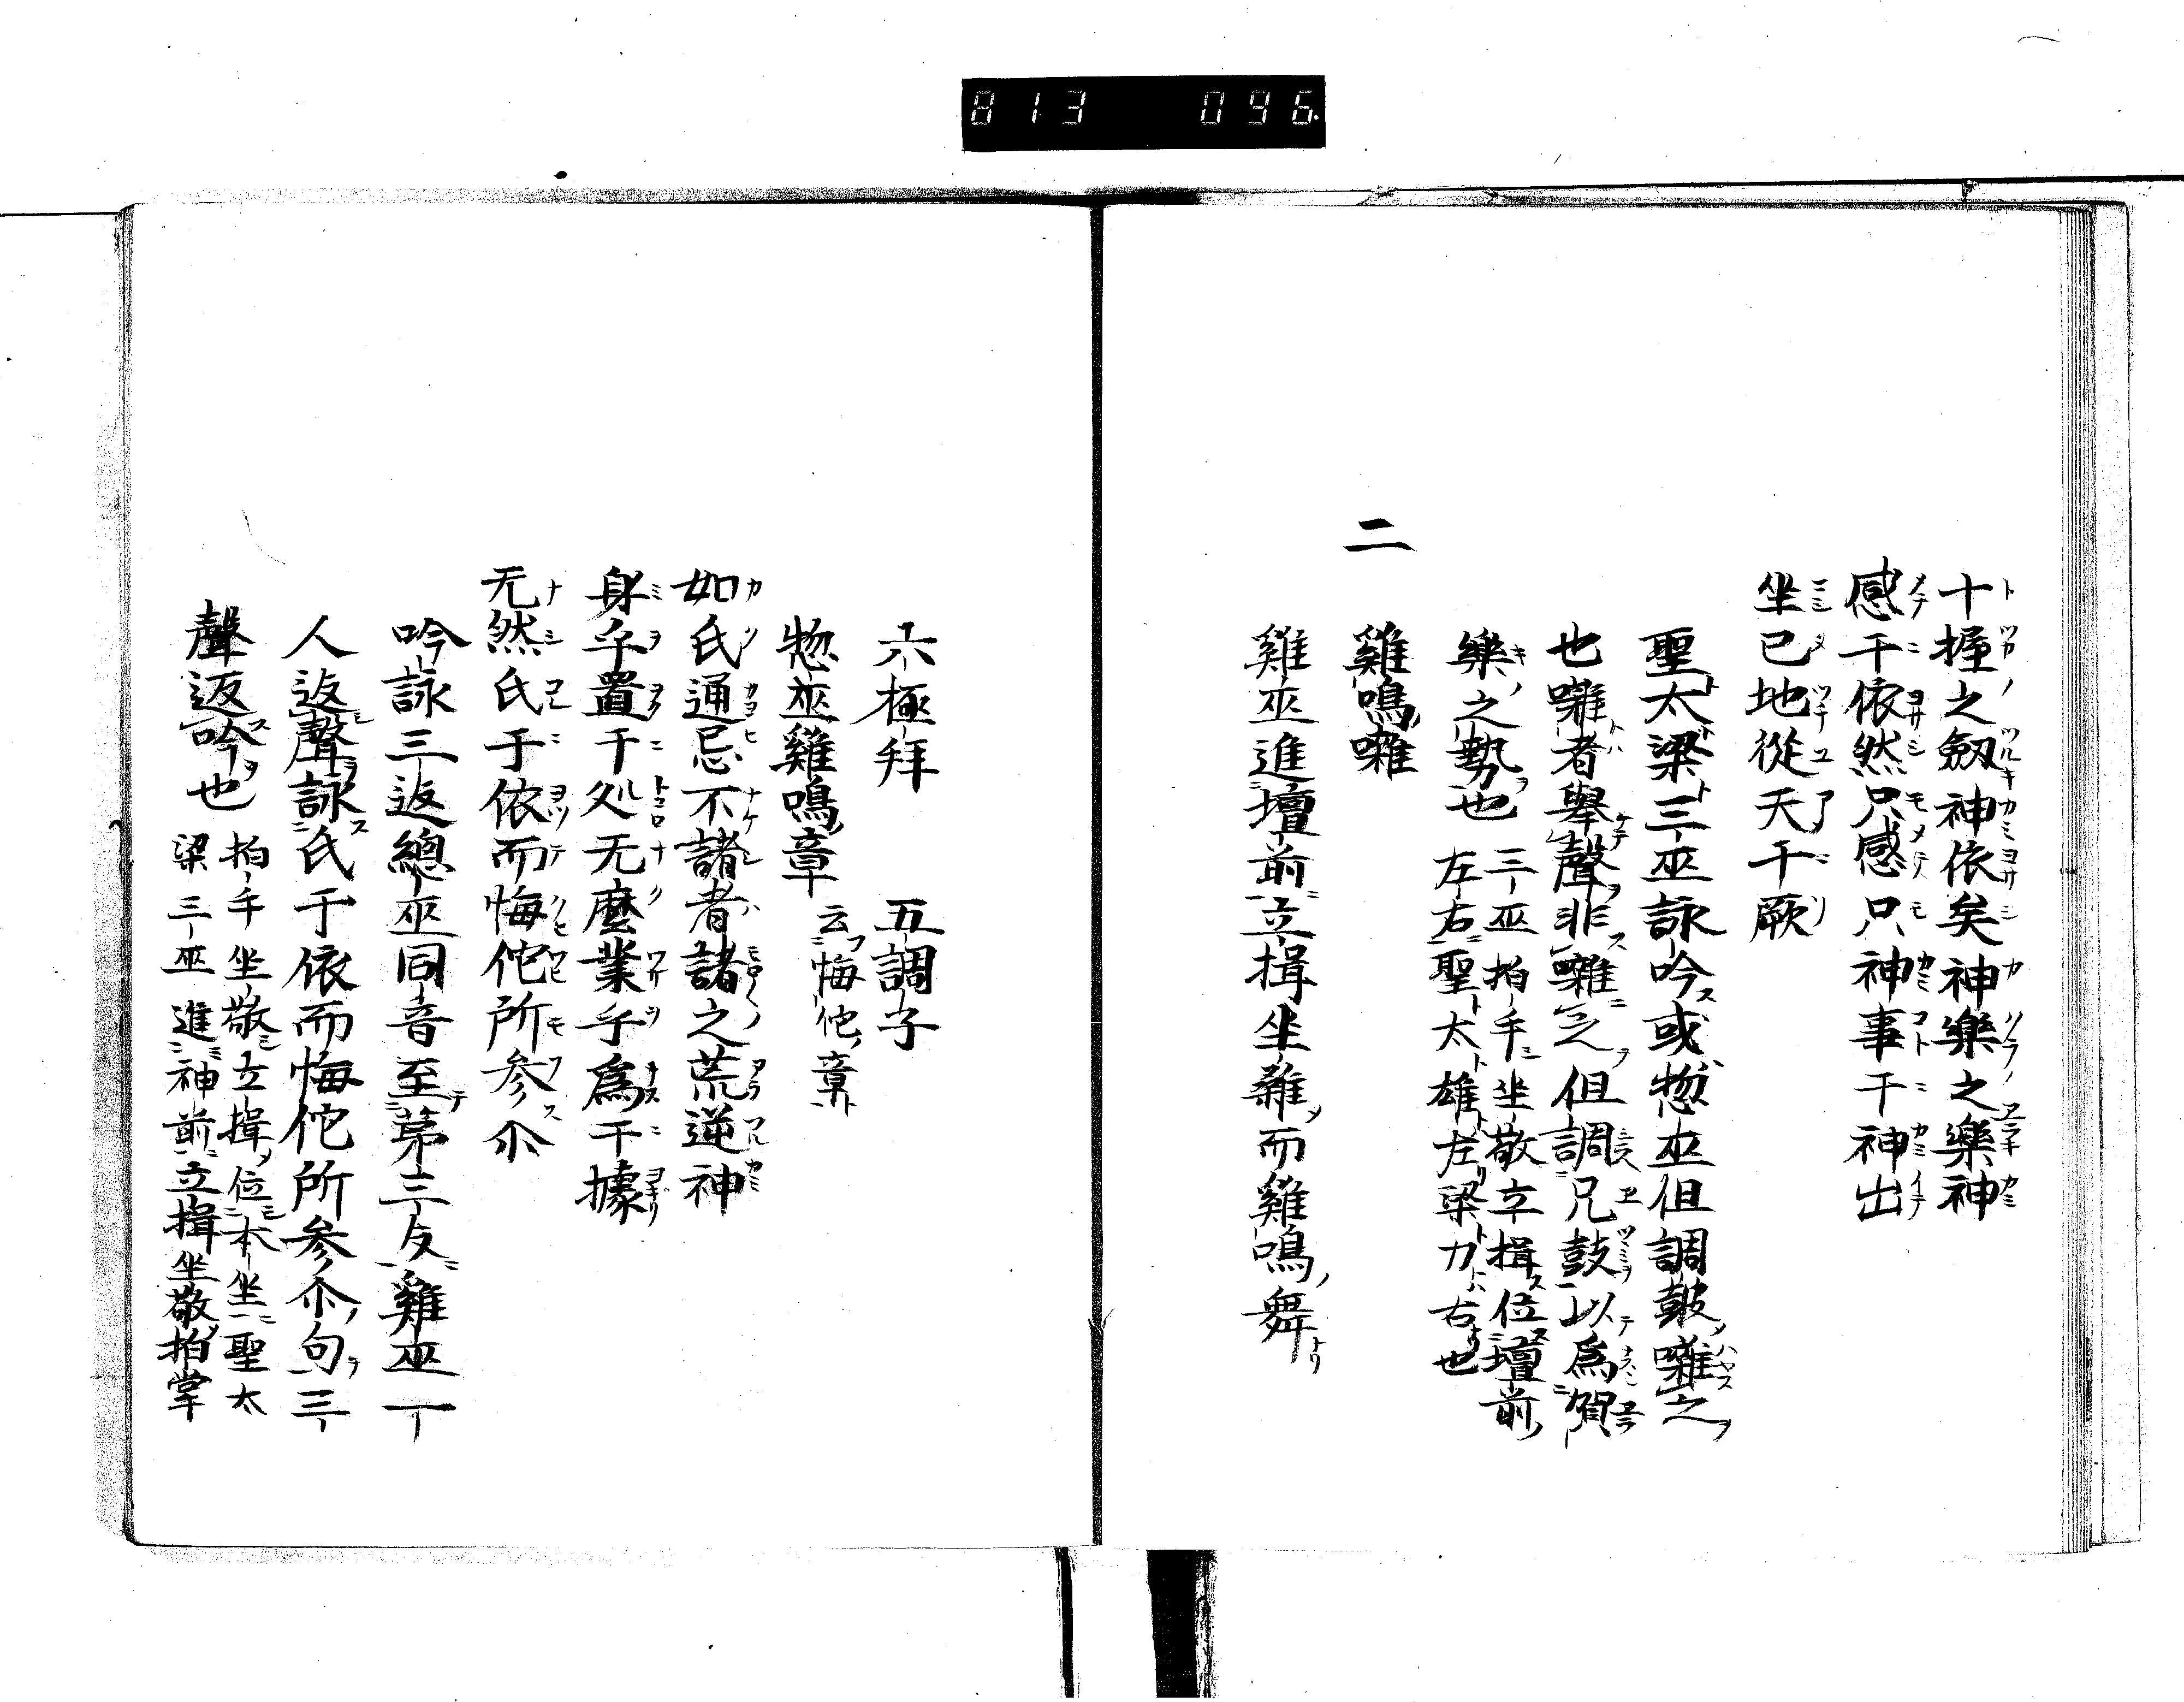 813 096
十握之劔神依矣神樂之樂神
感干依然只感只神事干神出
坐已地從天干厥
聖太梁三巫詠吟或惣巫但調皷囃之
也囃者舉聲非囃之但調兄鼓以爲賀
樂之勢也 三巫拍手坐敬立揖位壇前
左右聖太雄左梁力右也
二
雞鳴囃
雞巫進壇前立揖坐離而雞鳴舞
六極拜 五調子
惣巫雞鳴章 云悔佗章
如氏通忌不諸者諸之荒逆神
身乎置干処无麼業乎爲干據
无然氏于依而悔佗所參尒
吟詠三返總巫同音至苐三反雞巫一
人返聲詠氏于依而悔佗所參尒句三
聲返吟也 拍手坐敬立揖位本坐聖太
梁三巫進神前立揖坐敬拍掌